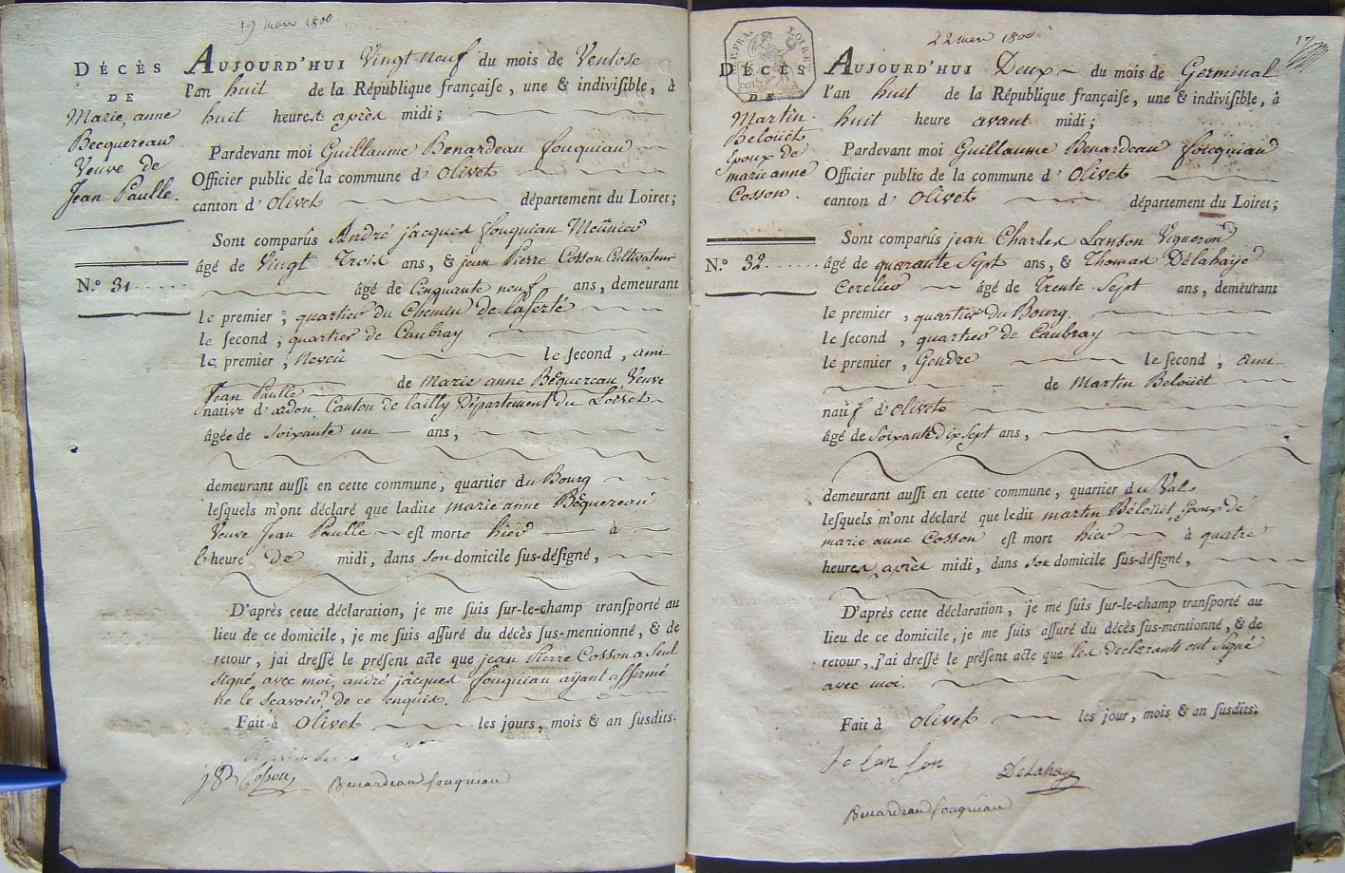 19 mars 1800
DÉCÈS
DE
Marie, anne
Becquereau
Veuve de
Jean Paulle.
N.º 31
AUJOURD'HUI Vingt-neuf du mois de Ventose
l'an huit de la République françaiſe, une & indiviſible, à
huit heures après midi;
Pardevant moi Guillaume Benardeau fouquiau
Officier public de la commune d'Olivet
canton d'Olivet département du Loiret;
Sont comparûs André jacques fouquiau Meûnier
âgé de Vingt Trois ans, & jean Pierre Cosson Cultivateur
âgé de Cinquante neuf ans, demeurant
le premier, quartier du Chemin de laferté
le ſecond, quartier de Caubray
le premier, Neveû le ſecond, ami
de Marie anne Becquereau, Veuve
Jean Paulle
native d'ardon Canton de lailly Département du Loiret
âgée de Soixante un ans,
demeurant auſſi en cette commune, quartier du Bourg
leſquels m'ont déclaré que ladite marie anne Bécquereau
Veuve Jean Paulle est morte hier à
l'heure de midi, dans son domicile ſus-déſigné,
D'après cette déclaration, je me ſuis ſur-le-champ tranſporté au
lieu de ce domicile, je me ſuis aſſuré du décès ſus-mentionné, & de
retour, j'ai dreſſé le préſent acte que jean Pierre Cosson a seul
signé avec moi, andré jacques fouquiau ayant affirmé
ne le scavoir, de ce enquis.
Fait à Olivet les jours, mois & an ſusdits.
J P Cosson Benardeau fouquiau
22 mars 1800
17
DÉCÈS
DE
Martin
Belouet
Epoux de
marie anne
Cosson.
N.º 32
AUJOURD'HUI Deux du mois de Germinal
l'an huit de la République françaiſe, une & indiviſible, à
huit heure avant midi;
Pardevant moi Guillaume Benardeau fouquiau
Officier public de la commune d'Olivet
canton d'Olivet département du Loiret;
Sont comparûs jean Charles Lanson Vigneron
âgé de quarante Sept ans, & Thomas Délahaye
Cerclier âgé de trente Sept ans, demeurant
le premier, quartier du Bourg
le ſecond, quartier de Caubray
le premier, Gendre le ſecond, ami
de Martin Belouet
naïf d'Olivet
âgé de Soixante dix Sept ans,
demeurant auſſi en cette commune, quartier du Val
leſquels m'ont déclaré que ledit martin Bélouet, Epoux de
marie anne Cosson est mort hier à quatre
heures après midi, dans son domicile ſus-déſigné,
D'après cette déclaration, je me ſuis ſur-le-champ tranſporté au
lieu de ce domicile, je me ſuis aſſuré du décès ſus-mentionné, & de
retour, j'ai dreſſé le préſent acte que les declarants ont signé
avec moi.
Fait à Olivet les jour, mois & an ſusdits.
Je lan son Delahaye
Benardeau fouquiau